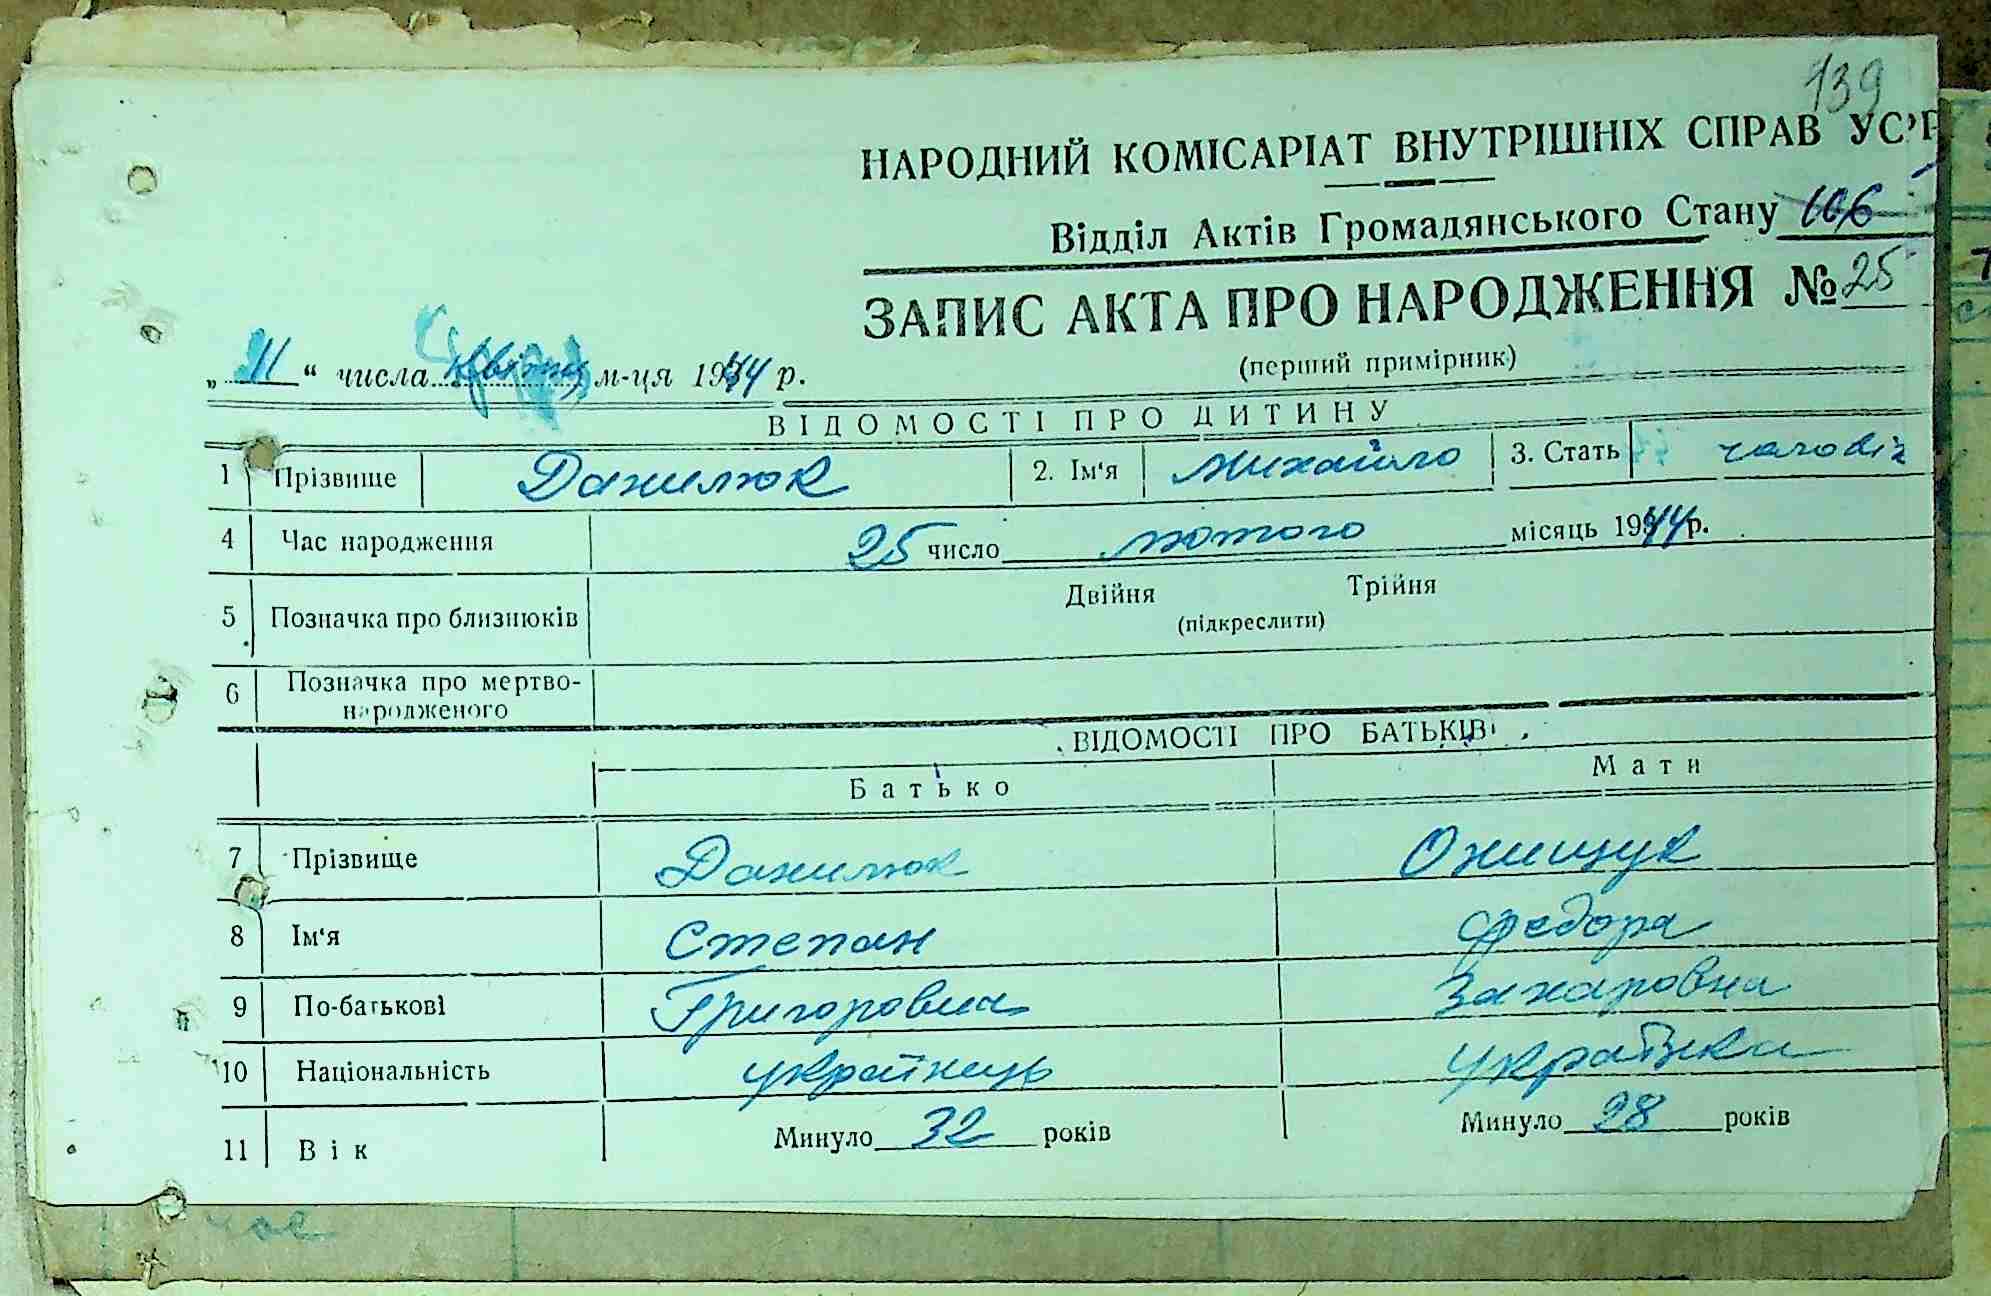 139
НАРОДНИЙ КОМІСАРІАТ ВНУТРІШНІХ СПРАВ УС
Відділ Актів Громадянського Стану 106
ЗАПИС АКТА ПРО НАРОДЖЕННЯ № 25
(перший примірник)
„11“ числа квітня м-ця 1944 р.
ВІДОМОСТІ ПРО ДИТИНУ
1 Прізвище Данилюк 2. Ім‘я Михайло 3. Стать чоловік
4 Час народження 25 число лютого місяць 1944 р.
5 Позначка про близнюків Двійня Трійня
(підкреслити)
6 Позначка про мертво-
народженого
ВІДОМОСТІ ПРО БАТЬКІВ
Батько Мати
7 Прізвище Данилюк Онищук
8 Ім‘я Степан Федора
9 По-батькові Григорович Захаровна
10 Національність українець українка
11 Вік Минуло 32 років Минуло 28 років